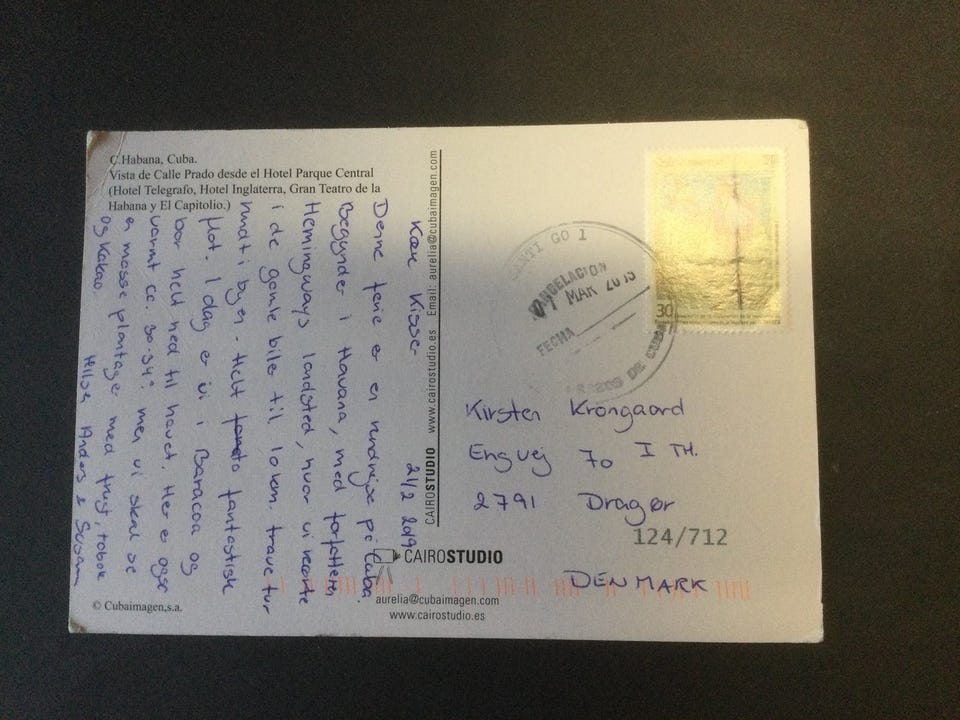 C.Habana, Cuba.
Vista de Calle Prado desde el Hotel Parque Central
(Hotel Telegrafo, Hotel Inglaterra, Gran Teatro de la
Habana y El Capitolio.)
Kære Kisser 21/2 2019
Denne ferie er en rundrejse på Cuba.
Begynder i Havana, med forfatteren
Hemingways landsted, hvor vi
i de gamle biler til
rundt i byen - Helt fantastisk
flot. I dag er vi i Baracoa og
bor helt ned til havet. Her er også
varmt ca. 30-34° men vi skal se
en plantage med frugt, tobak
og Kakao.
Hilsen Anders & Susan
© Cubaimagen,s.a.
CAIROSTUDIO www.cairostudio.es Email: aurelia@cubaimagen.com
CAIROSTUDIO
aurelia@cubaimagen.com
www.cairostudio.es
GO 1
CANCELACION
MAR
FECHA
DE CUBA
30
Kirsten Krongaard
Engvej 70 I TH.
2791 Dragør
124/712
DENMARK